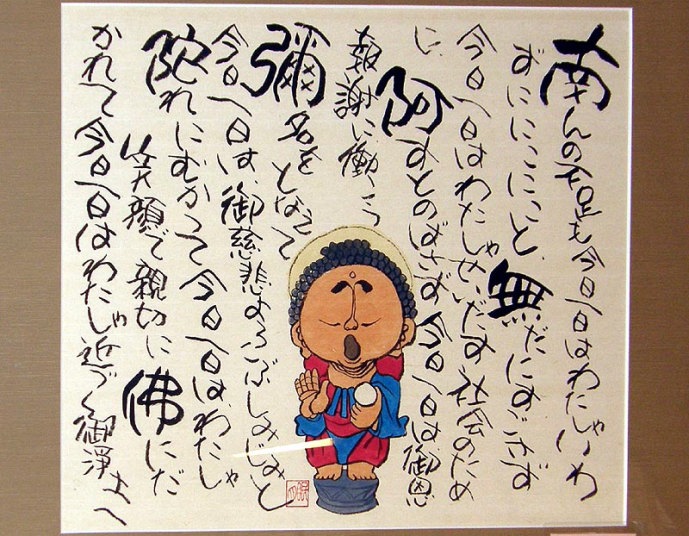 南んの不足も今日一日はわたしゃいわ
ずににこにこと無だにすごさず
今日一日はわたしゃせいだす社会のため
に阿すとのばさず今日一日は御恩
報謝に働こう
彌名をとなえて
今日一日は御慈悲よろこぶしみじみと
陀れにむかって今日一日はわたしゃ
笑顔で親切に佛にだ
かれて今日一日はわたしゃ近づく御浄土へ